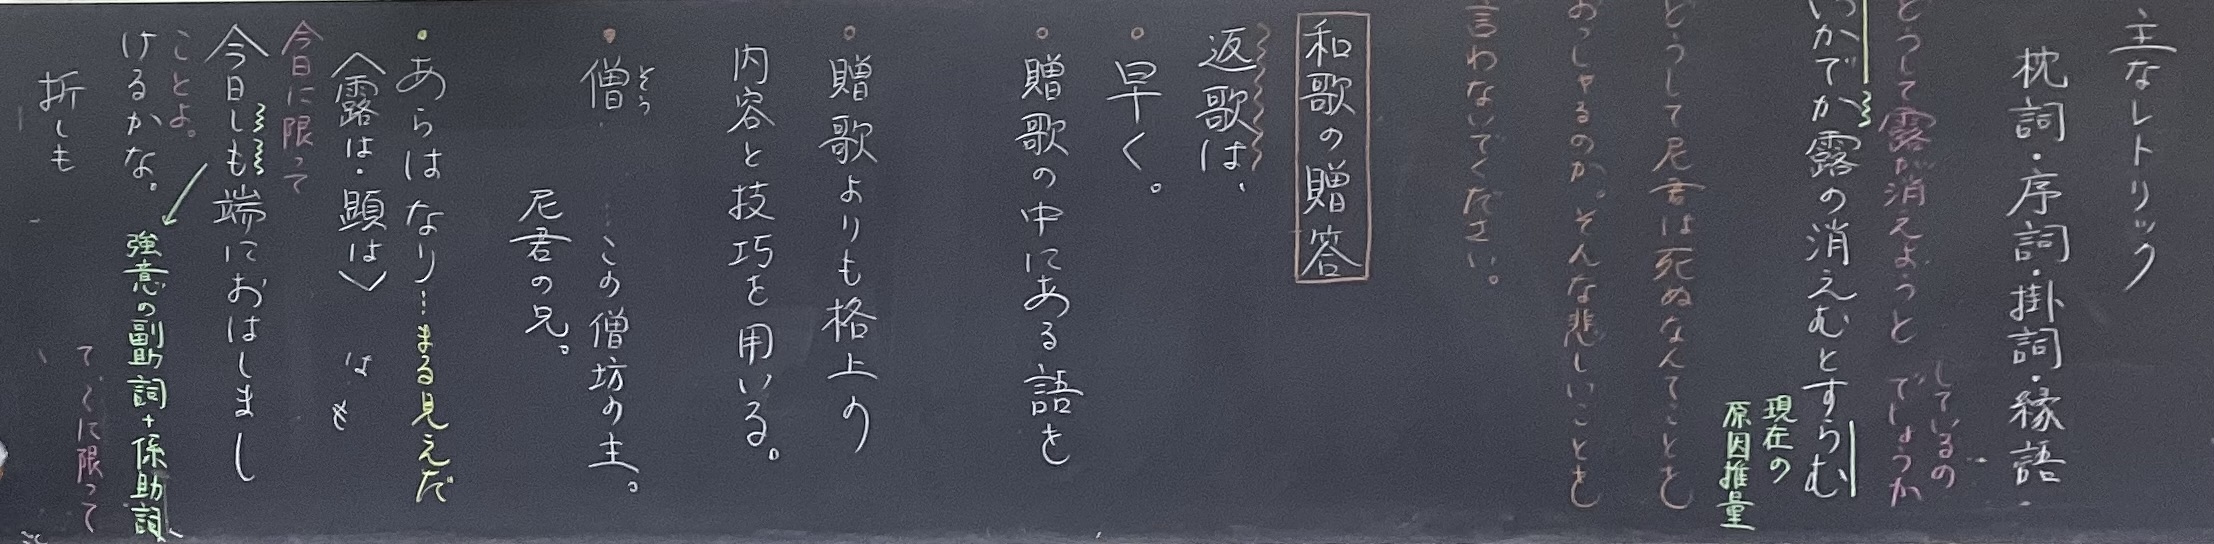 主なレトリック
枕詞・序詞・掛詞・縁語・
しているの
どうして露が消えようと でしょうか
いかでか露の消えむとすらむ
現在の
原因推量
どうして尼君は死ぬなんてことを
おっしゃるのか。そんな悲しいことを
言わないでください。
和歌の贈答
返歌は、
○早く。
○贈歌の中にある語を
○贈歌よりも格上の
内容と技巧を用いる。
そう
・僧……この僧坊の主。
尼君の兄。
・あらはなり…まる見えだ
〈露は・顕は〉
は
今日に限って
今日しも端におはしまし
ことよ。
けるかな。
強意の副助詞+係助詞
折しも
に限って